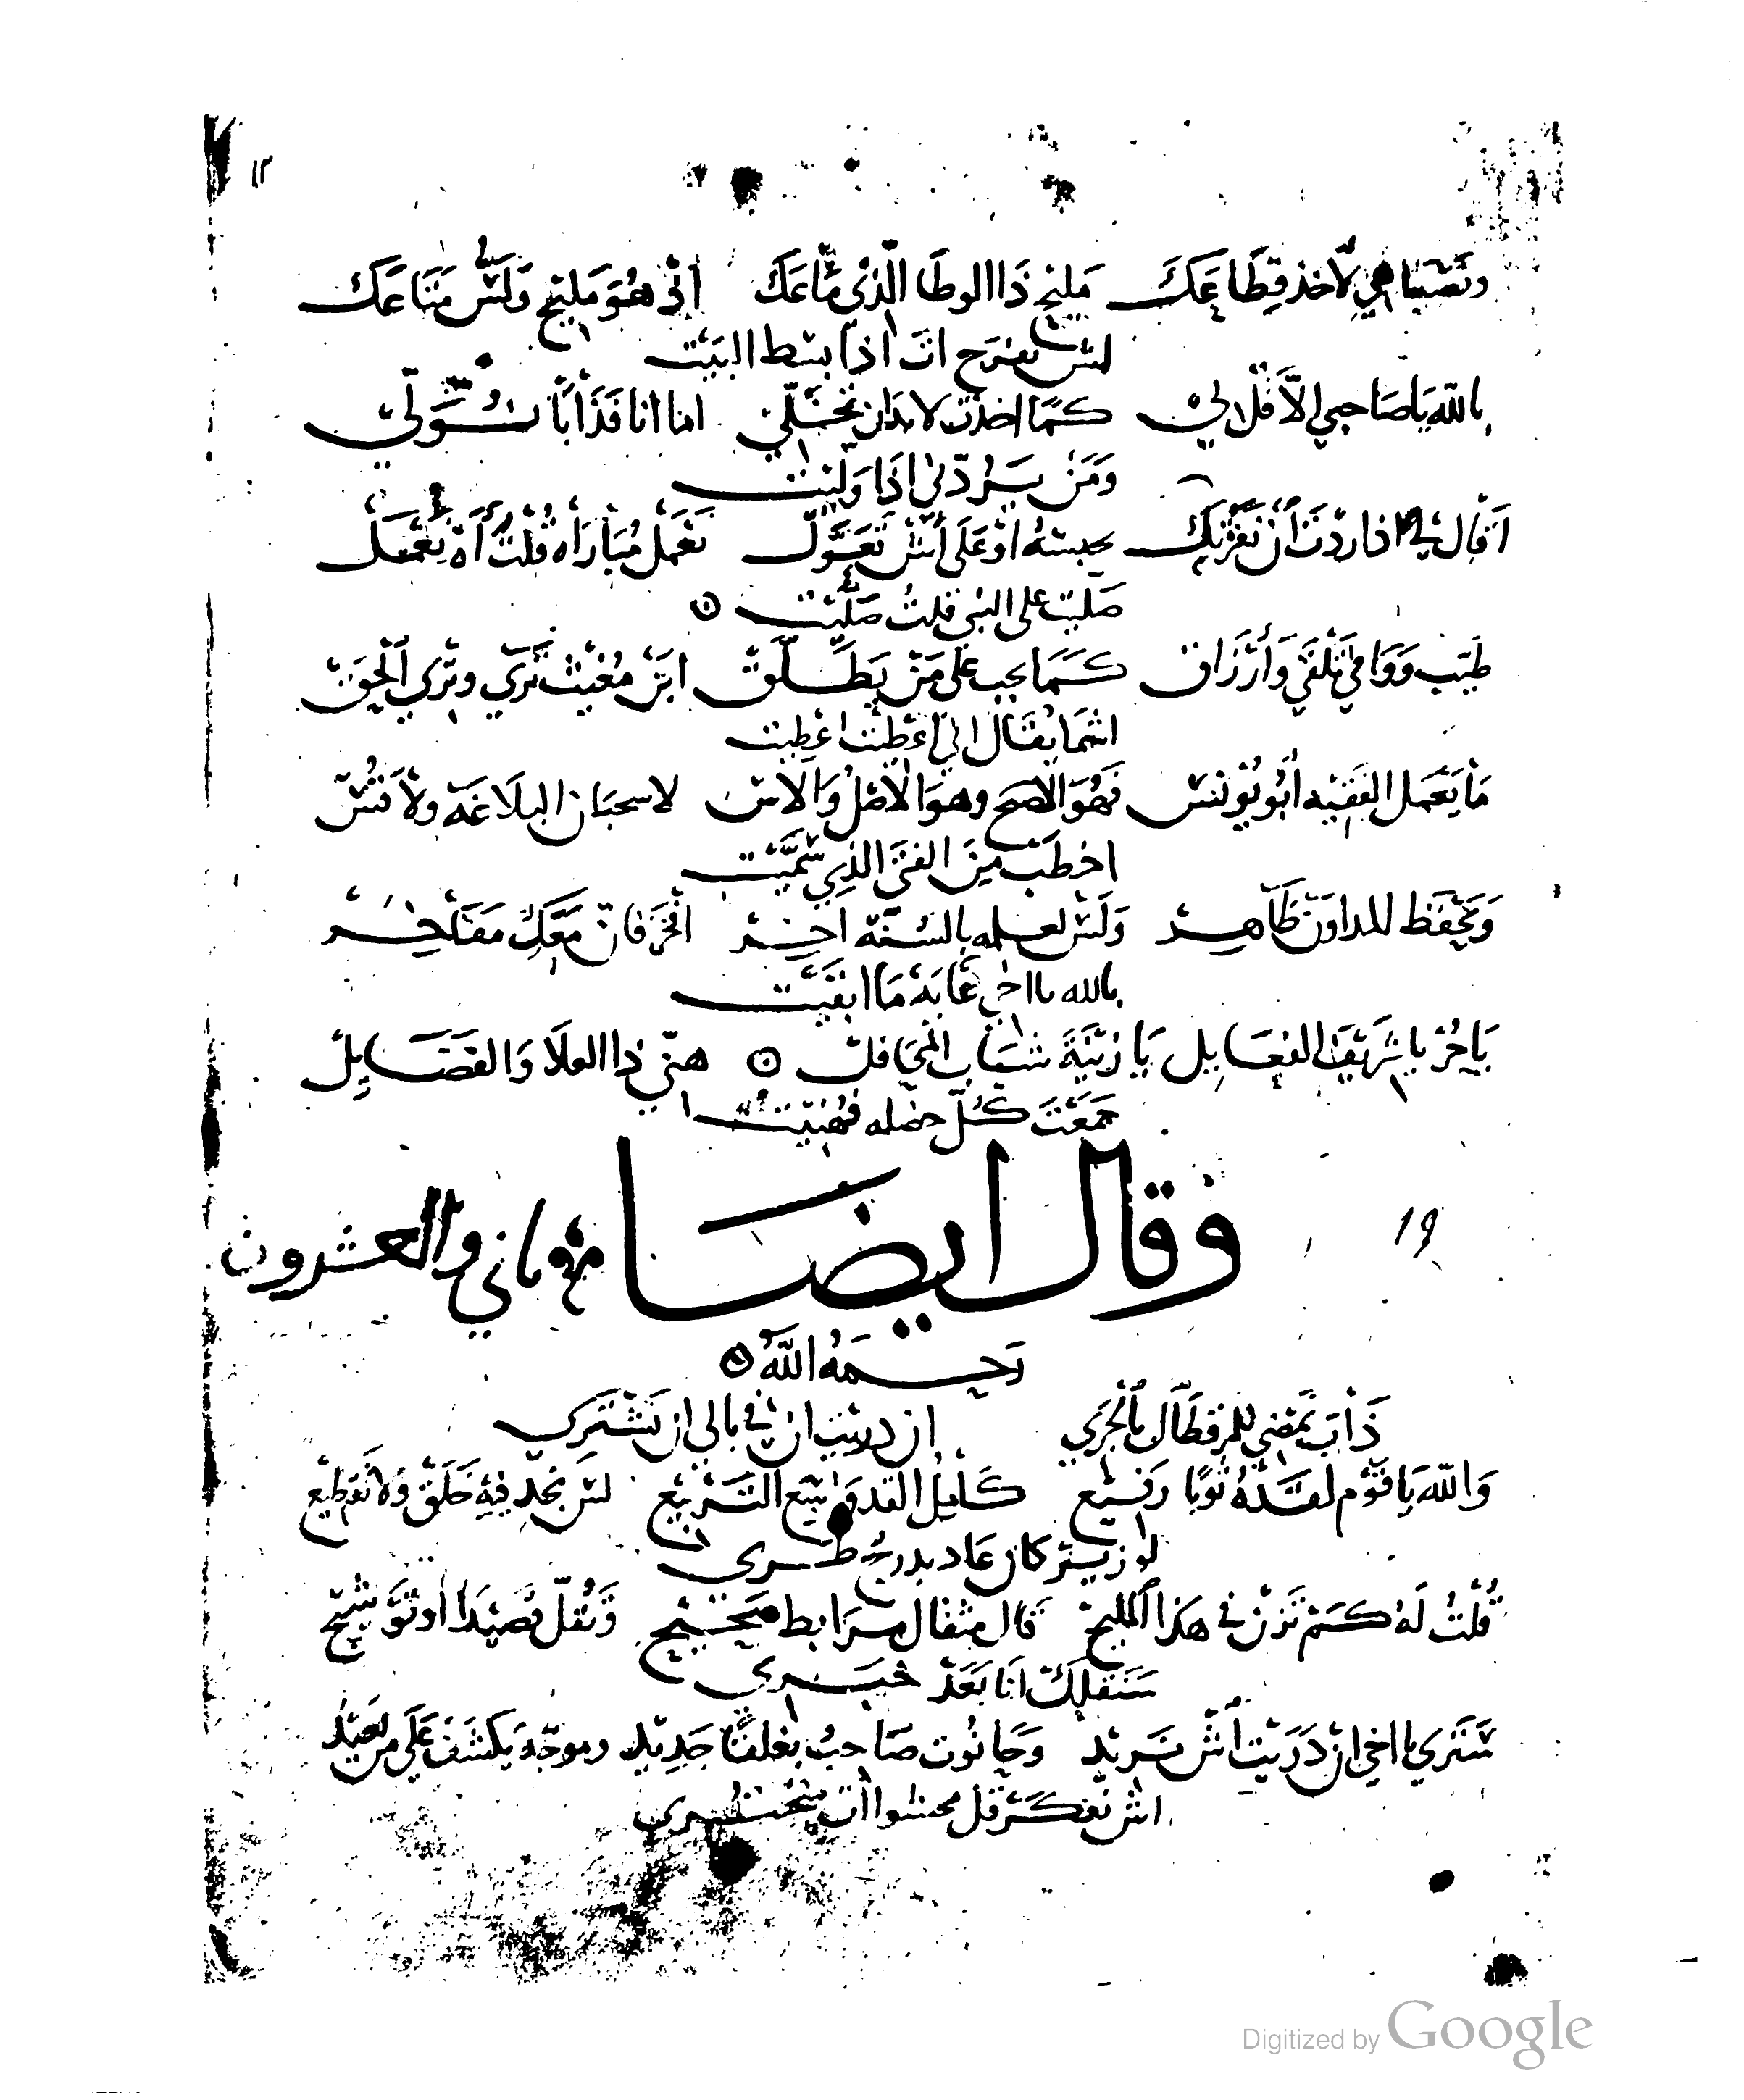 ١٢
لاخذ قطاعك مليح ذا الوطا الذي متاعك اي هو مليح ولس متاعك
لس تفرح ات اذا بسط البيت
بالله يا صاحبي الا قل لي كما اخذت لا بدان تخلي اما انا فذابا نولي
ومن يردني اذا وليت
اقال لي اذا ردت ان نغرنك او على أش تعول نعمل مباراه قلت أه نعمل
صليت على النبي قلت صليت
طيب ووافي تلقى وأرزاق كما يجب على من يطلق اين مغيث تري وتري الحق
اشما يقال لي اعطيت اعطيت
ما يعمل الفقيه أبو يونس فهو الاصح وهو الاصل والاس لا سحبان البلاغه ولا قس
اخطب من الفتى الذي سميت
ويحفظ للمداون ظاهر ولس لعلمه بالسنة اخر افخر فان معك مفاخر
بالله يا اخي غايه ما ابقيت
يا حر يا شريف الفعايل يا زينة شباب المحافل هني ذا العلا والفضايل
جمعت كل خصله فهنيت
19
وقال ايضا وهو ثاني والعشرون
رحمه الله
ذاب تمضي للمرقطال بالجري ان دريت ان في بالي ان نشتري
والله يا قوم لقده ثوبا رفيع كامل القد وابيع التربيع لس نجد فيه خلق ولا تقطيع
لو زير كان عاد بدرج طري
قلت له كم تزن في هذا المليح قال مثقال مرابط صحيح
سنقلك انا بعد خبري
سنري يا اخي ان دريت أش نريد وحانوت صاحب بغلقا جديد وموجه يكشف على من بعيد
اش نفكر قل محسوا ات مشتري
Digitized by Google